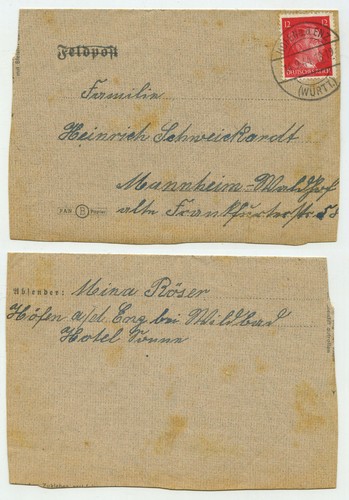 Feldpost
12 12
DEUTSCHES REICH
(WÜRTT)
Familie
Heinrich Schweickardt
Mannheim-Waldhof
alte Frankfurterstr 58
PAN B
Absender: Meina Röser
Höfen a/d. Eng bei Wildbad
Hotel Sonne